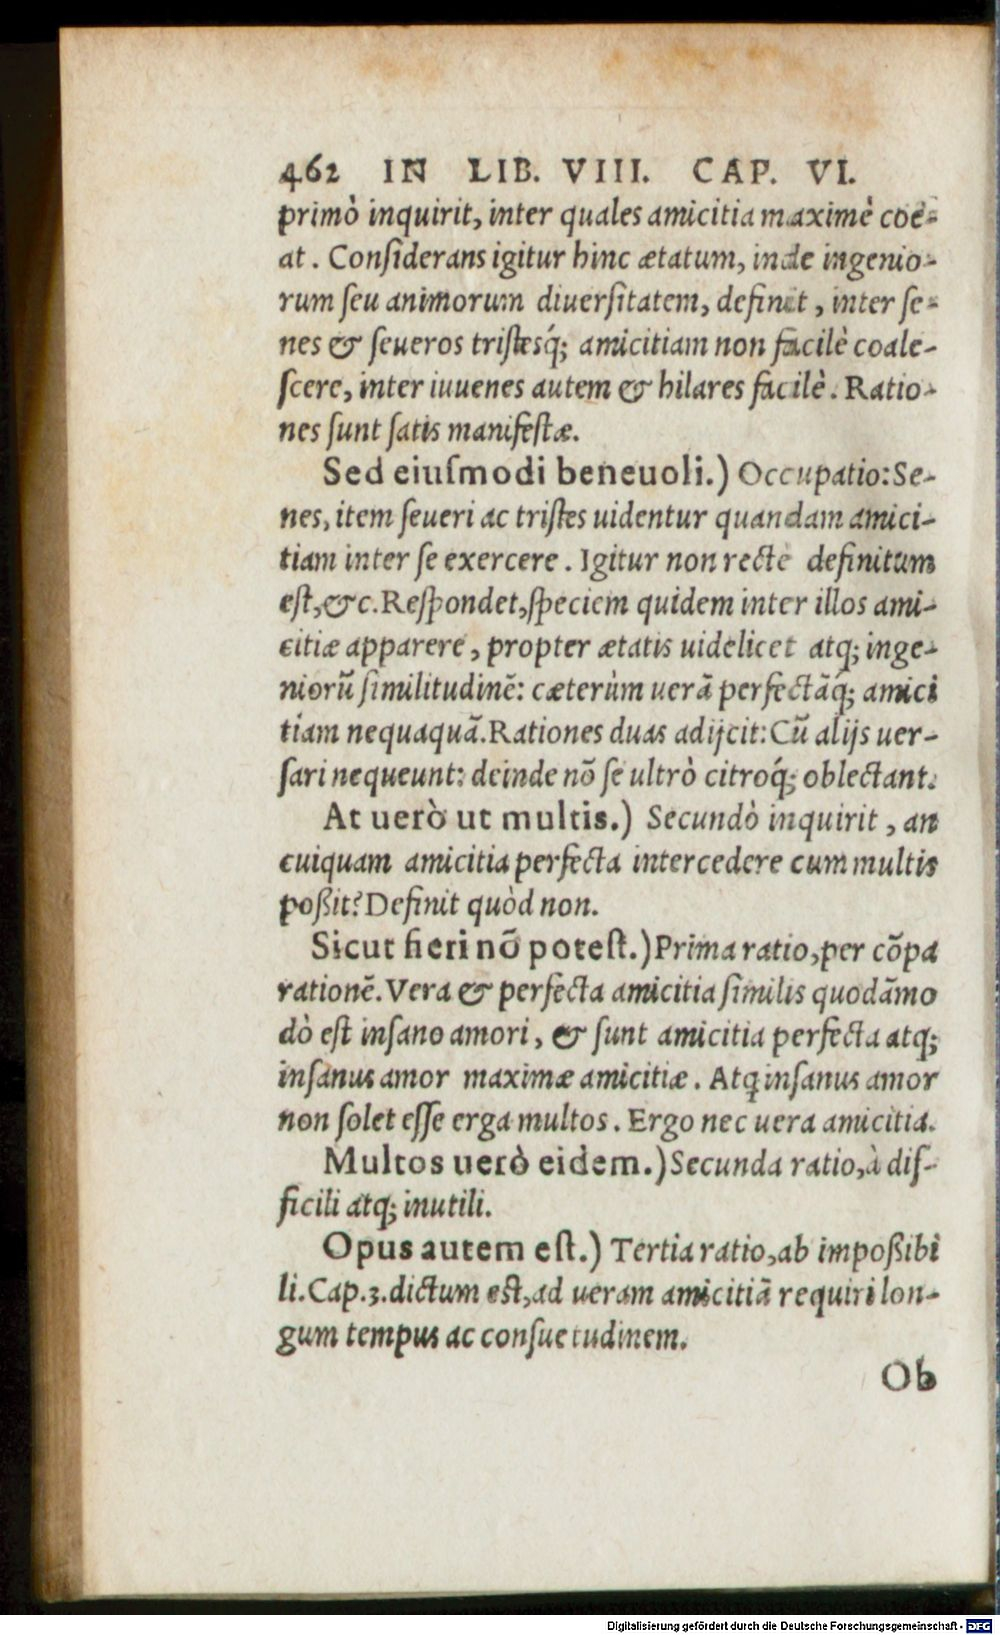 462 IN LIB. VIII. CAP. VI.
primò inquirit, inter quales amicitia maximè coë-
at. Considerans igitur hinc ætatum, inde ingenio-
rum seu animorum diuersitatem, definit, inter se-
nes & seueros tristesq́; amicitiam non facilè coale-
scere, inter iuuenes autem & hilares facilè. Ratio-
nes sunt satis manifestæ.
Sed eiusmodi beneuoli.) Occupatio: Se-
nes, item seueri ac tristes uidentur quandam amici-
tiam inter se exercere. Igitur non rectè definitum
est, &c. Respondet, speciem quidem inter illos ami-
citiæ apparere, propter ætatis uidelicet atq; inge-
niorũ similitudinẽ: cæterùm uerã perfectãq́; amici
tiam nequaquã. Rationes duas adijcit: Cũ alijs uer-
sari nequeunt: deinde nõ se ultrò citroq́; oblectant.
At uerò ut multis.) Secundò inquirit, an
cuiquam amicitia perfecta intercedere cum multis
poßit? Definit quòd non.
Sicut fieri nõ potest.) Prima ratio, per cõpa
rationẽ. Vera & perfecta amicitia similis quodãmo
dò est insano amori, & sunt amicitia perfecta atq;
insanus amor maximæ amicitiæ. Atq insanus amor
non solet esse erga multos. Ergo nec uera amicitia.
Multos uerò eidem.) Secunda ratio, à dif-
ficili atq; inutili.
Opus autem est.) Tertia ratio, ab impoßibi
li. Cap. 3. dictum est, ad ueram amicitiã requiri lon-
gum tempus ac consuetudinem.
Ob
Digitalisierung gefördert durch die Deutsche Forschungsgemeinschaft - DFG